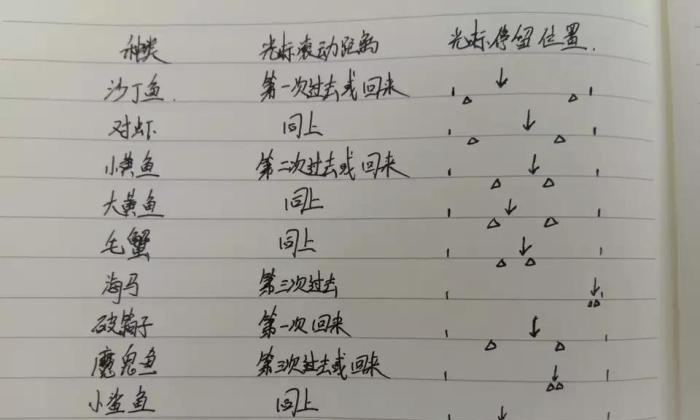 种类 光标滚动距离 光标停留位置.
沙丁鱼. 第一次过去或回来
对虾 同上
小黄鱼 第二次过去或回来
大黄鱼 同上
毛蟹 同上
海马 第三次过去
破鞋子 第一次回来
魔鬼鱼 第三次过去或回来
小鲨鱼 同上